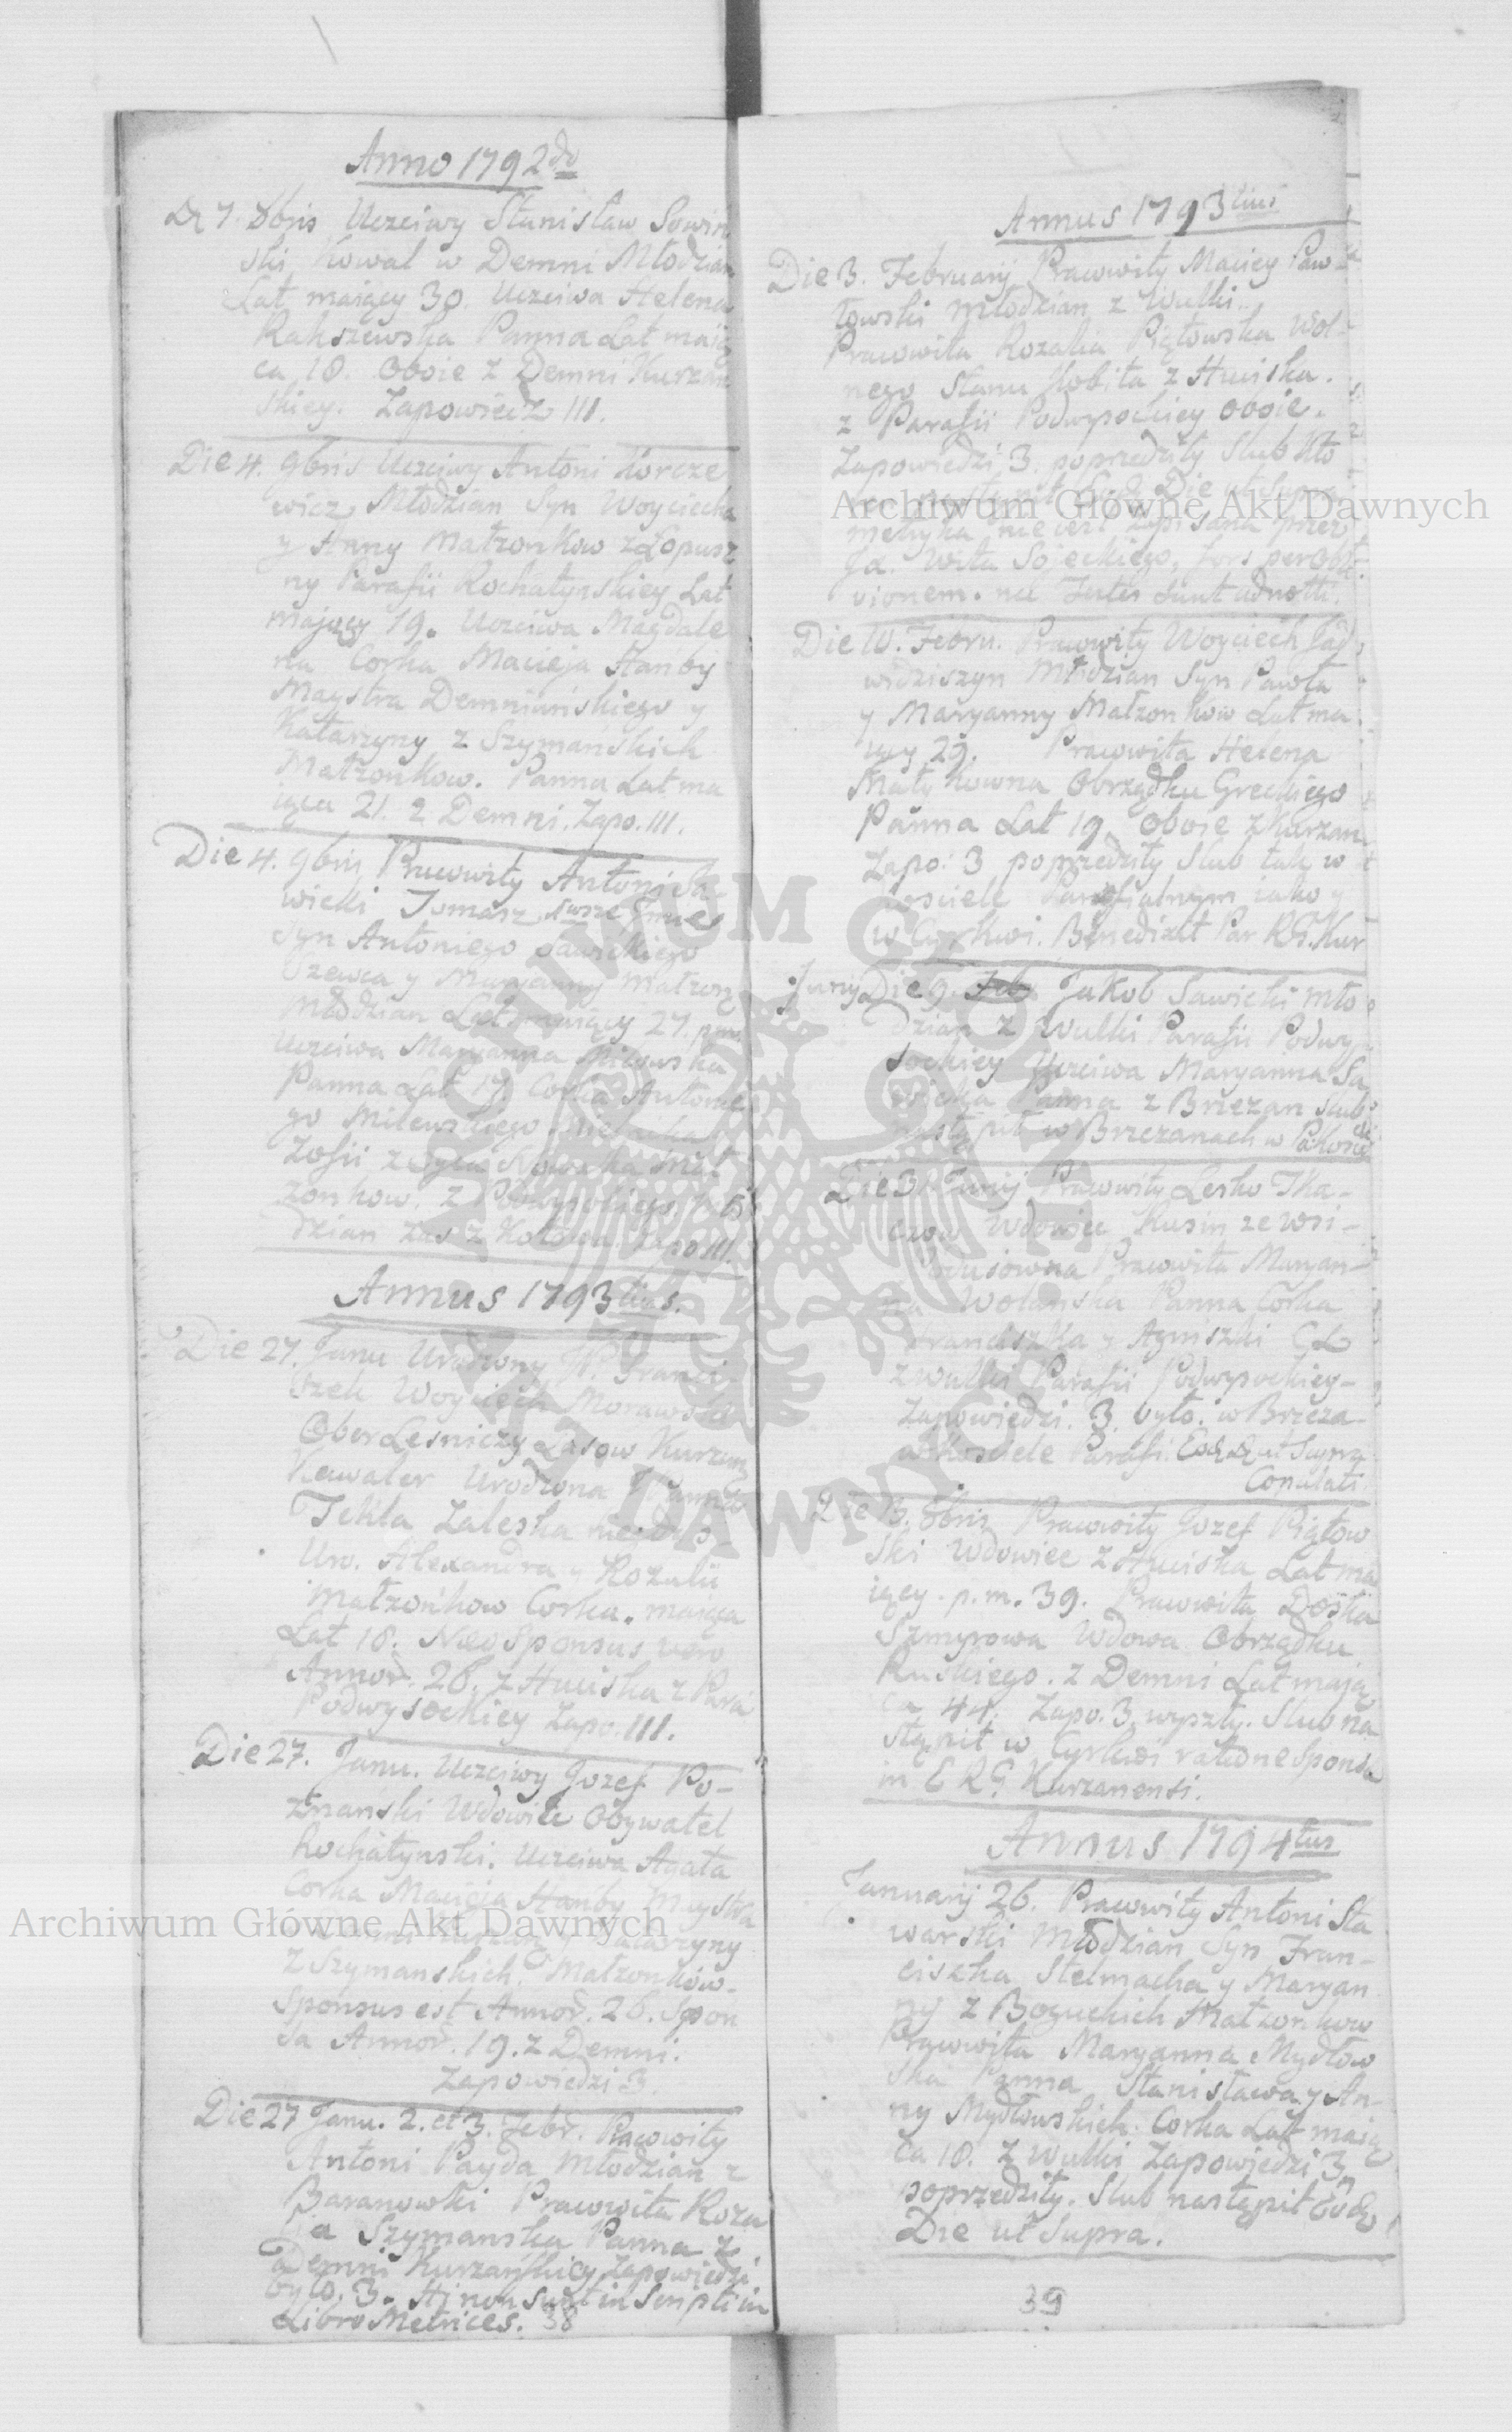 Anno 1792do
D. 7. 8bris Uczciwy Stanisław Sowiń
ski Kowal w Demni Młodzian
Lat maiący 30. Uczciwa Helena
Rakszewska Panna Lat maią
ca 18. Oboie z Demni Kurzań
skiey. Zapowiedz III.
Die 4. 9bris Uczciwy Antoni Korcze
wicz Młodzian Syn Woyciecha
y Anny Małzonkow z Łopusz
ny Parafii Rochatynskiey Lat
mający 19. Uczciwa Magdale
na Corka Macieja Hanby
Maystra Demniańskiego y
Katarzyny z Szymańskich
Małzonkow. Panna Lat ma
iąca 21. z Demni. Zapo. III.
Die 4. 9bris Pracowity Antoni Sa
wicki Tomasz
Syn Antoniego Sawickiego
Szewca y Maryanny Małzon
Młodzian Lat maiący 27. p.m.
Uczciwa Maryanna Milewska
Panna Lat 17 Corka Antonie
go Milewskiego
Zofii Mał
zonkow. z Podwysokiego. Mło
dzian zas z Zapo III.
Annus 1793tius.
Die 27. Janu Urodzony JP. Franci
szek Woyciech Morawski
Ober Lesniczy Lasow Kurzan
Kawaler Urodzona JPanna
Tekla Zaleska niegdys
Ur. Alexandra y Rozalii
Małzonkow Corka. maiąca
Lat 18. Neo Sponsus vero
Annor. 28. z Huciska z Para
Podwysockiey Zapo. III.
Die 27. Janu. Uczciwy Jozef Po-
znanski Wdowiec Obywatel
Rochatynski. Uczciwa Agata
Corka Macieja Hanby Maystra
Katarzyny
z Szymanskich. Małzonków-
Sponsus est Annor. 28. Spon
sa Annor. 19. z Demni.
Zapowiedzi 3.
Die 27 Janu. 2. et 3. Febr. Pracowity
Antoni Payda Młodzian z
Baranowki Pracowita Roza
lia Szymanska Panna z
Demni Kurzańskiey Zapowiedzi
było. 3. Hi non sunt inscripti in
Libro Metrices. 38
Annus 1793tius
Die 3. Februarij Pracowity Maciey Paw-
łowski Młodzian z Wulki.
Pracowita Rozalia Piątowska Wol-
nego Stanu Kobita z Huciska.
z Parafii Podwysockiey oboie.
Zapowiedzi 3. poprzedziły Slub
Die ut supra
metryka nie iest zapisana przez
Jx. Wita Sojeckiego, fors per obli
vionem. nec Testes sunt adnotti.
Die 10. Febru. Pracowity Woyciech Jad
widziszyn Młodzian Syn Pawła
y Maryanny Małzonkow Lat ma
iący 29. Pracowita Helena
Małykowna Obrządku Greckiego
Panna Lat 19. Oboie z Kurzan
Zapo: 3 poprzedziły Slub tak w
kosciele Parafialnym iako y
w Cyrkwi. Benedixit Par RG. Kur
Junij Die 9. Feb Jakob Sawicki Mło
dzian z Wulki Parafii Podwy
sockiey Uczciwa Maryanna Sa
wicka Panna z Brzezan slub
nastąpił w Brzezanach w Pa. Kosciele
Die 3. Junij Pracowity Lesko Tka-
czow Wdowiec Rusin ze wsi-
Pracowita Maryan-
na Wolańska Panna Corka
Franciszka y Agniszki CL
z Wulki Parafii Podwysockiey-
Zapowiedzi. 3. było. w Brzeza-
w kosciele Parafi. Eod. D. ut Supra
Copulati
Die 13. 8bris Pracowity Jozef Piątow
ski Wdowiec z Huciska Lat ma
iący. p.m. 39. Pracowita Doska
Szmyrowa Wdowa Obrządku
Ruskiego. z Demni Lat mają
ca 44. Zapo. 3. wyszły. Slub na
stąpił w Cyrkwi ratione Sponsa
in E RG. Kurzanensi.
Annus 1794tus
Januarij 26. Pracowity Antoni Sta
warski Młodzian Syn Fran-
ciszka Stelmacha y Maryan
ny z Boguckich Małzonkow
Pracowita Maryanna Mydłow
ska Panna Stanisława y An-
ny Mydłowskich. Corka Lat maią
ca 18. z Wulki Zapowiedzi 3.
poprzedziły. Slub nastąpił Eod
Die ut Supra.
39
Archiwum Główne Akt Dawnych
Archiwum Główne Akt Dawnych